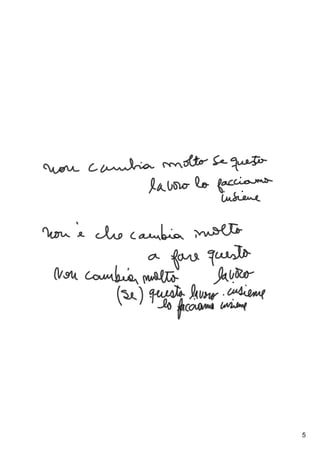 non cambia molto se questo
lavoro lo facciamo
insieme
non è che cambia molto
a fare questo
Non cambia, molto lavoro
(se) questo lavoro. insieme
lo facciamo insieme
5